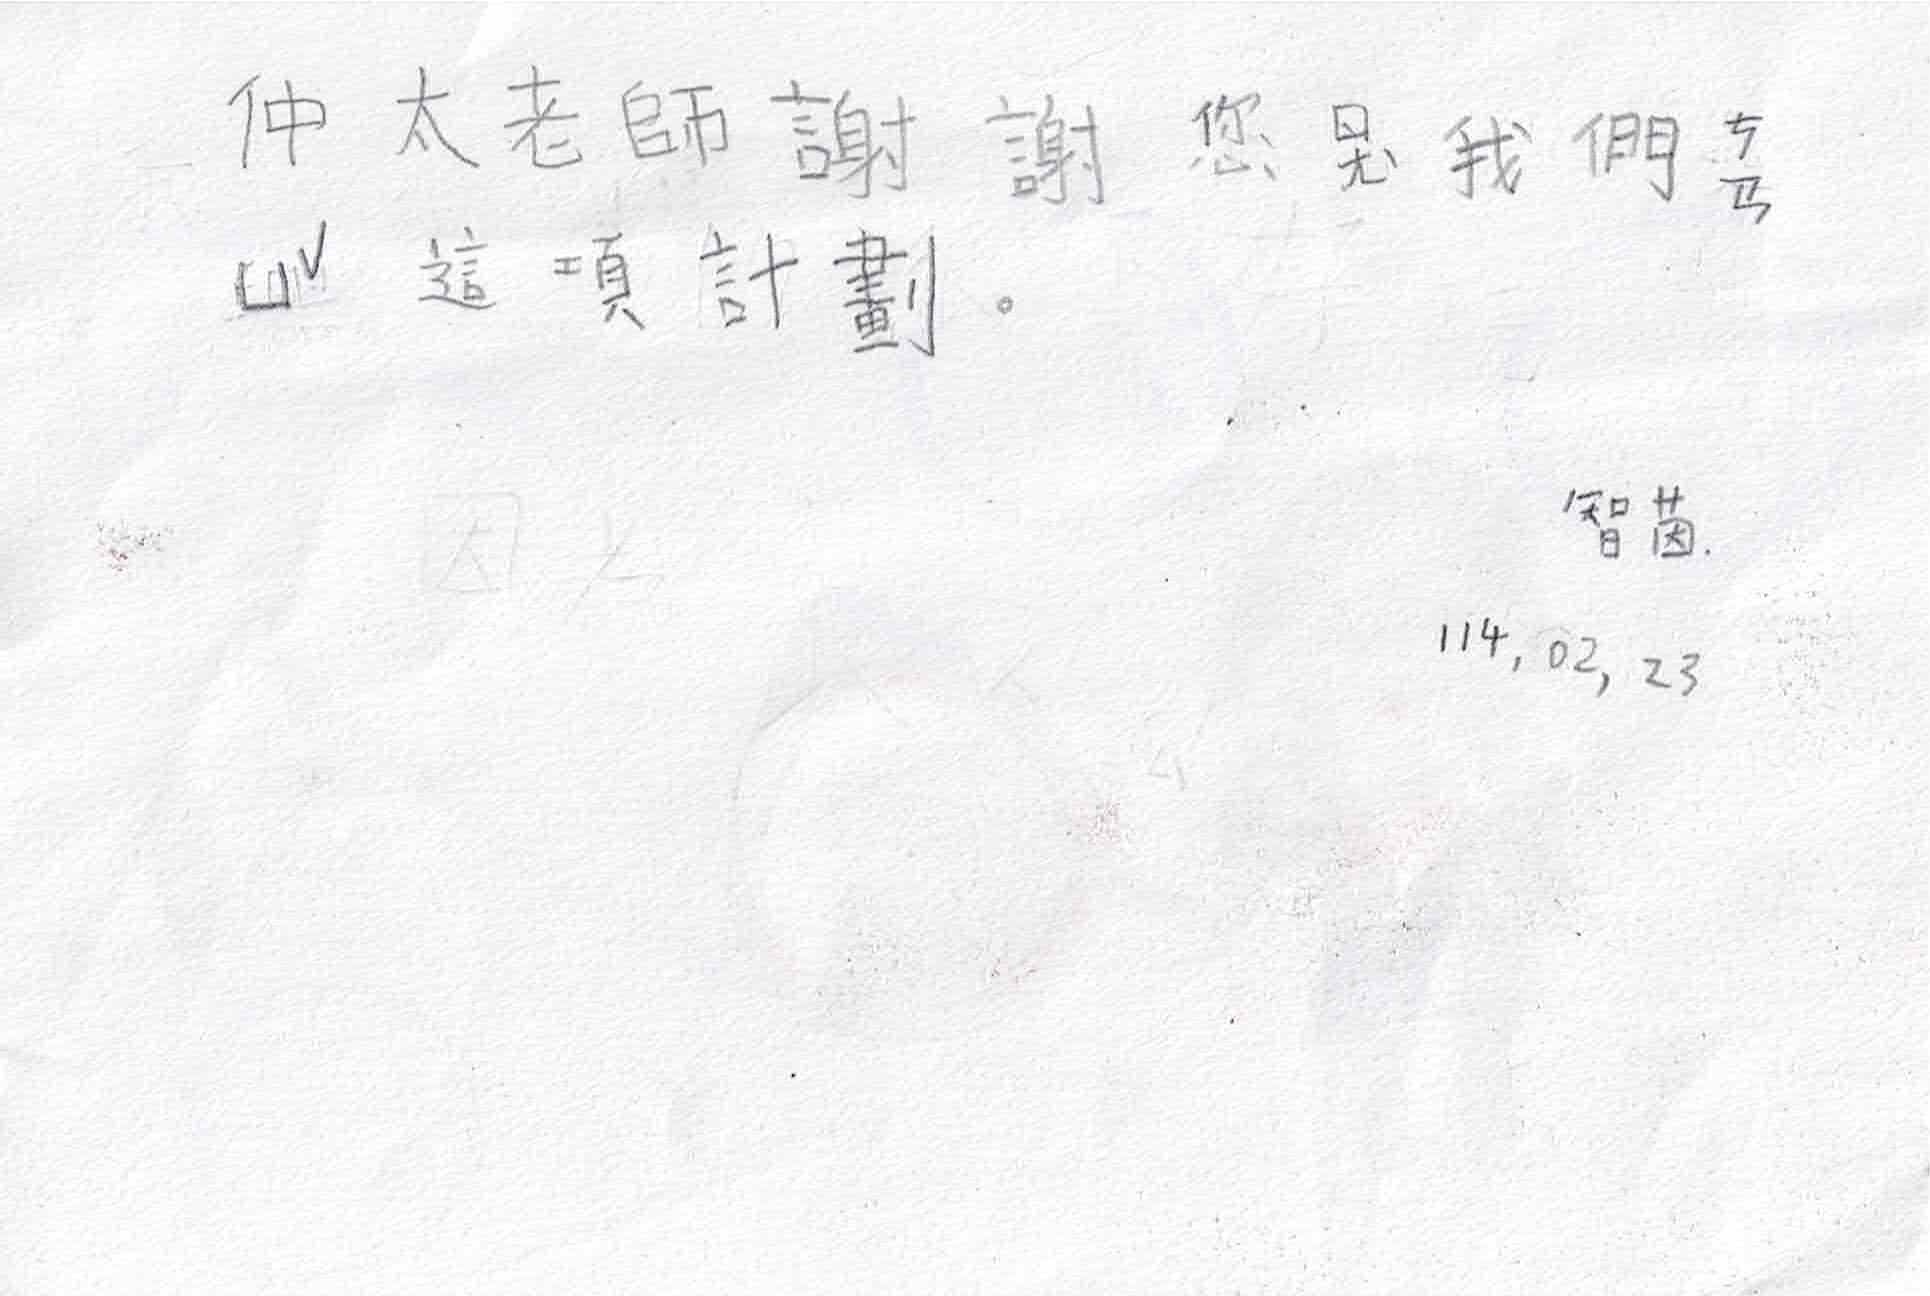 仲太老師謝謝您 我們ㄘㄢ
ㄩˇ這項計劃。
智茵.
114,02,23